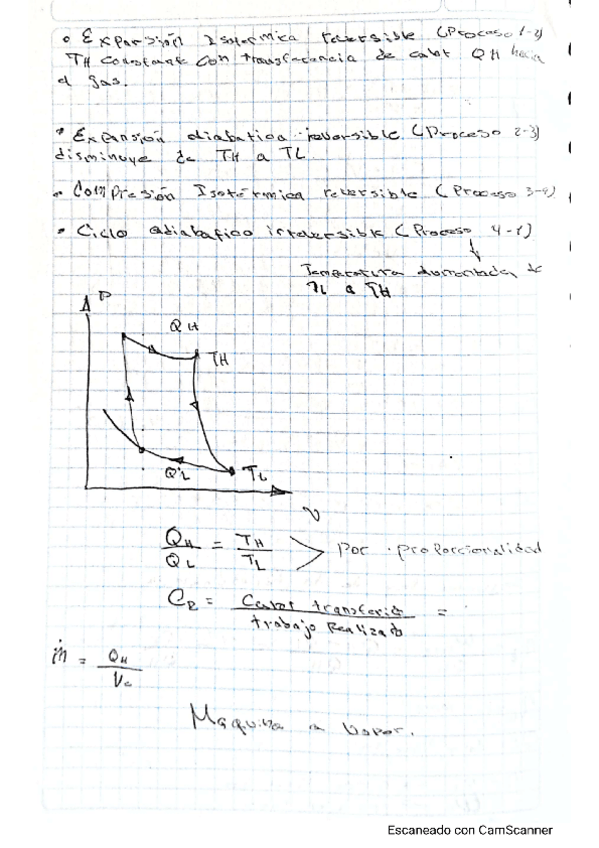 • Expansión Isotermica reversible (Proceso 1-2)
TH constante con transferencia de calor QH hacia
el gas.
• Expansión diabatica reversible (Proceso 2-3)
disminuye de TH a TL
• Compresión Isotérmica reversible (Proceso 3-4)
• Ciclo adiabatico interversible (Proceso 4-1)
Temperatura aumentada de
TL a TH
P
QH
TH
QL
TL
V
QH/QL = TH/TL > por proporcionalidad
CR = Calor transferid / trabajo Realizado =
ṁ = QH/Vc
Maquina a Vapor.
Escaneado con CamScanner